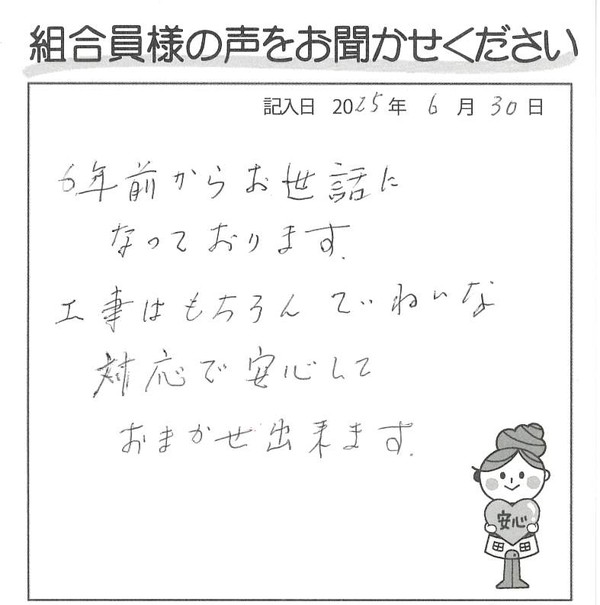 組合員様の声をお聞かせください
記入日 2025年 6月 30日
6年前からお世話に
なっております.
工事はもちろん ていねいな
対応で安心して
おまかせ出来ます.
安心